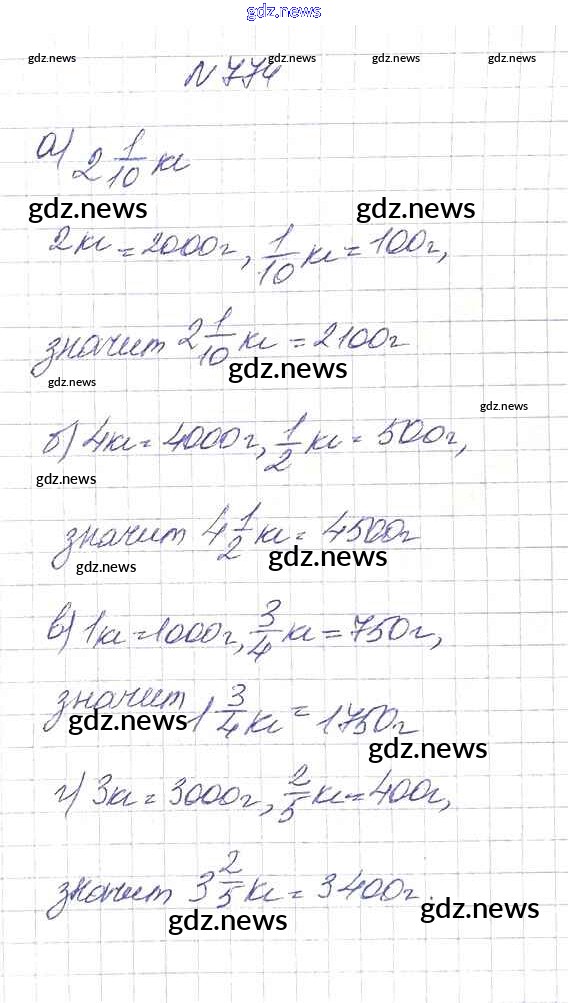 gdz.news
gdz.news gdz.news gdz.news gdz.news
N 774
а) 2 1/10 кг
gdz.news gdz.news
2кг = 2000г, 1/10 кг = 100г,
значит 2 1/10 кг = 2100г
gdz.news
gdz.news
gdz.news
б) 4кг = 4000г, 1/2 кг = 500г,
gdz.news
значит 4 1/2 кг = 4500г
gdz.news
gdz.news
в) 1кг = 1000г, 3/4 кг = 750г,
значит 1 3/4 кг = 1750г
gdz.news
gdz.news
г) 3кг = 3000г, 2/5 кг = 400г,
значит 3 2/5 кг = 3400г.
gdz.news gdz.news